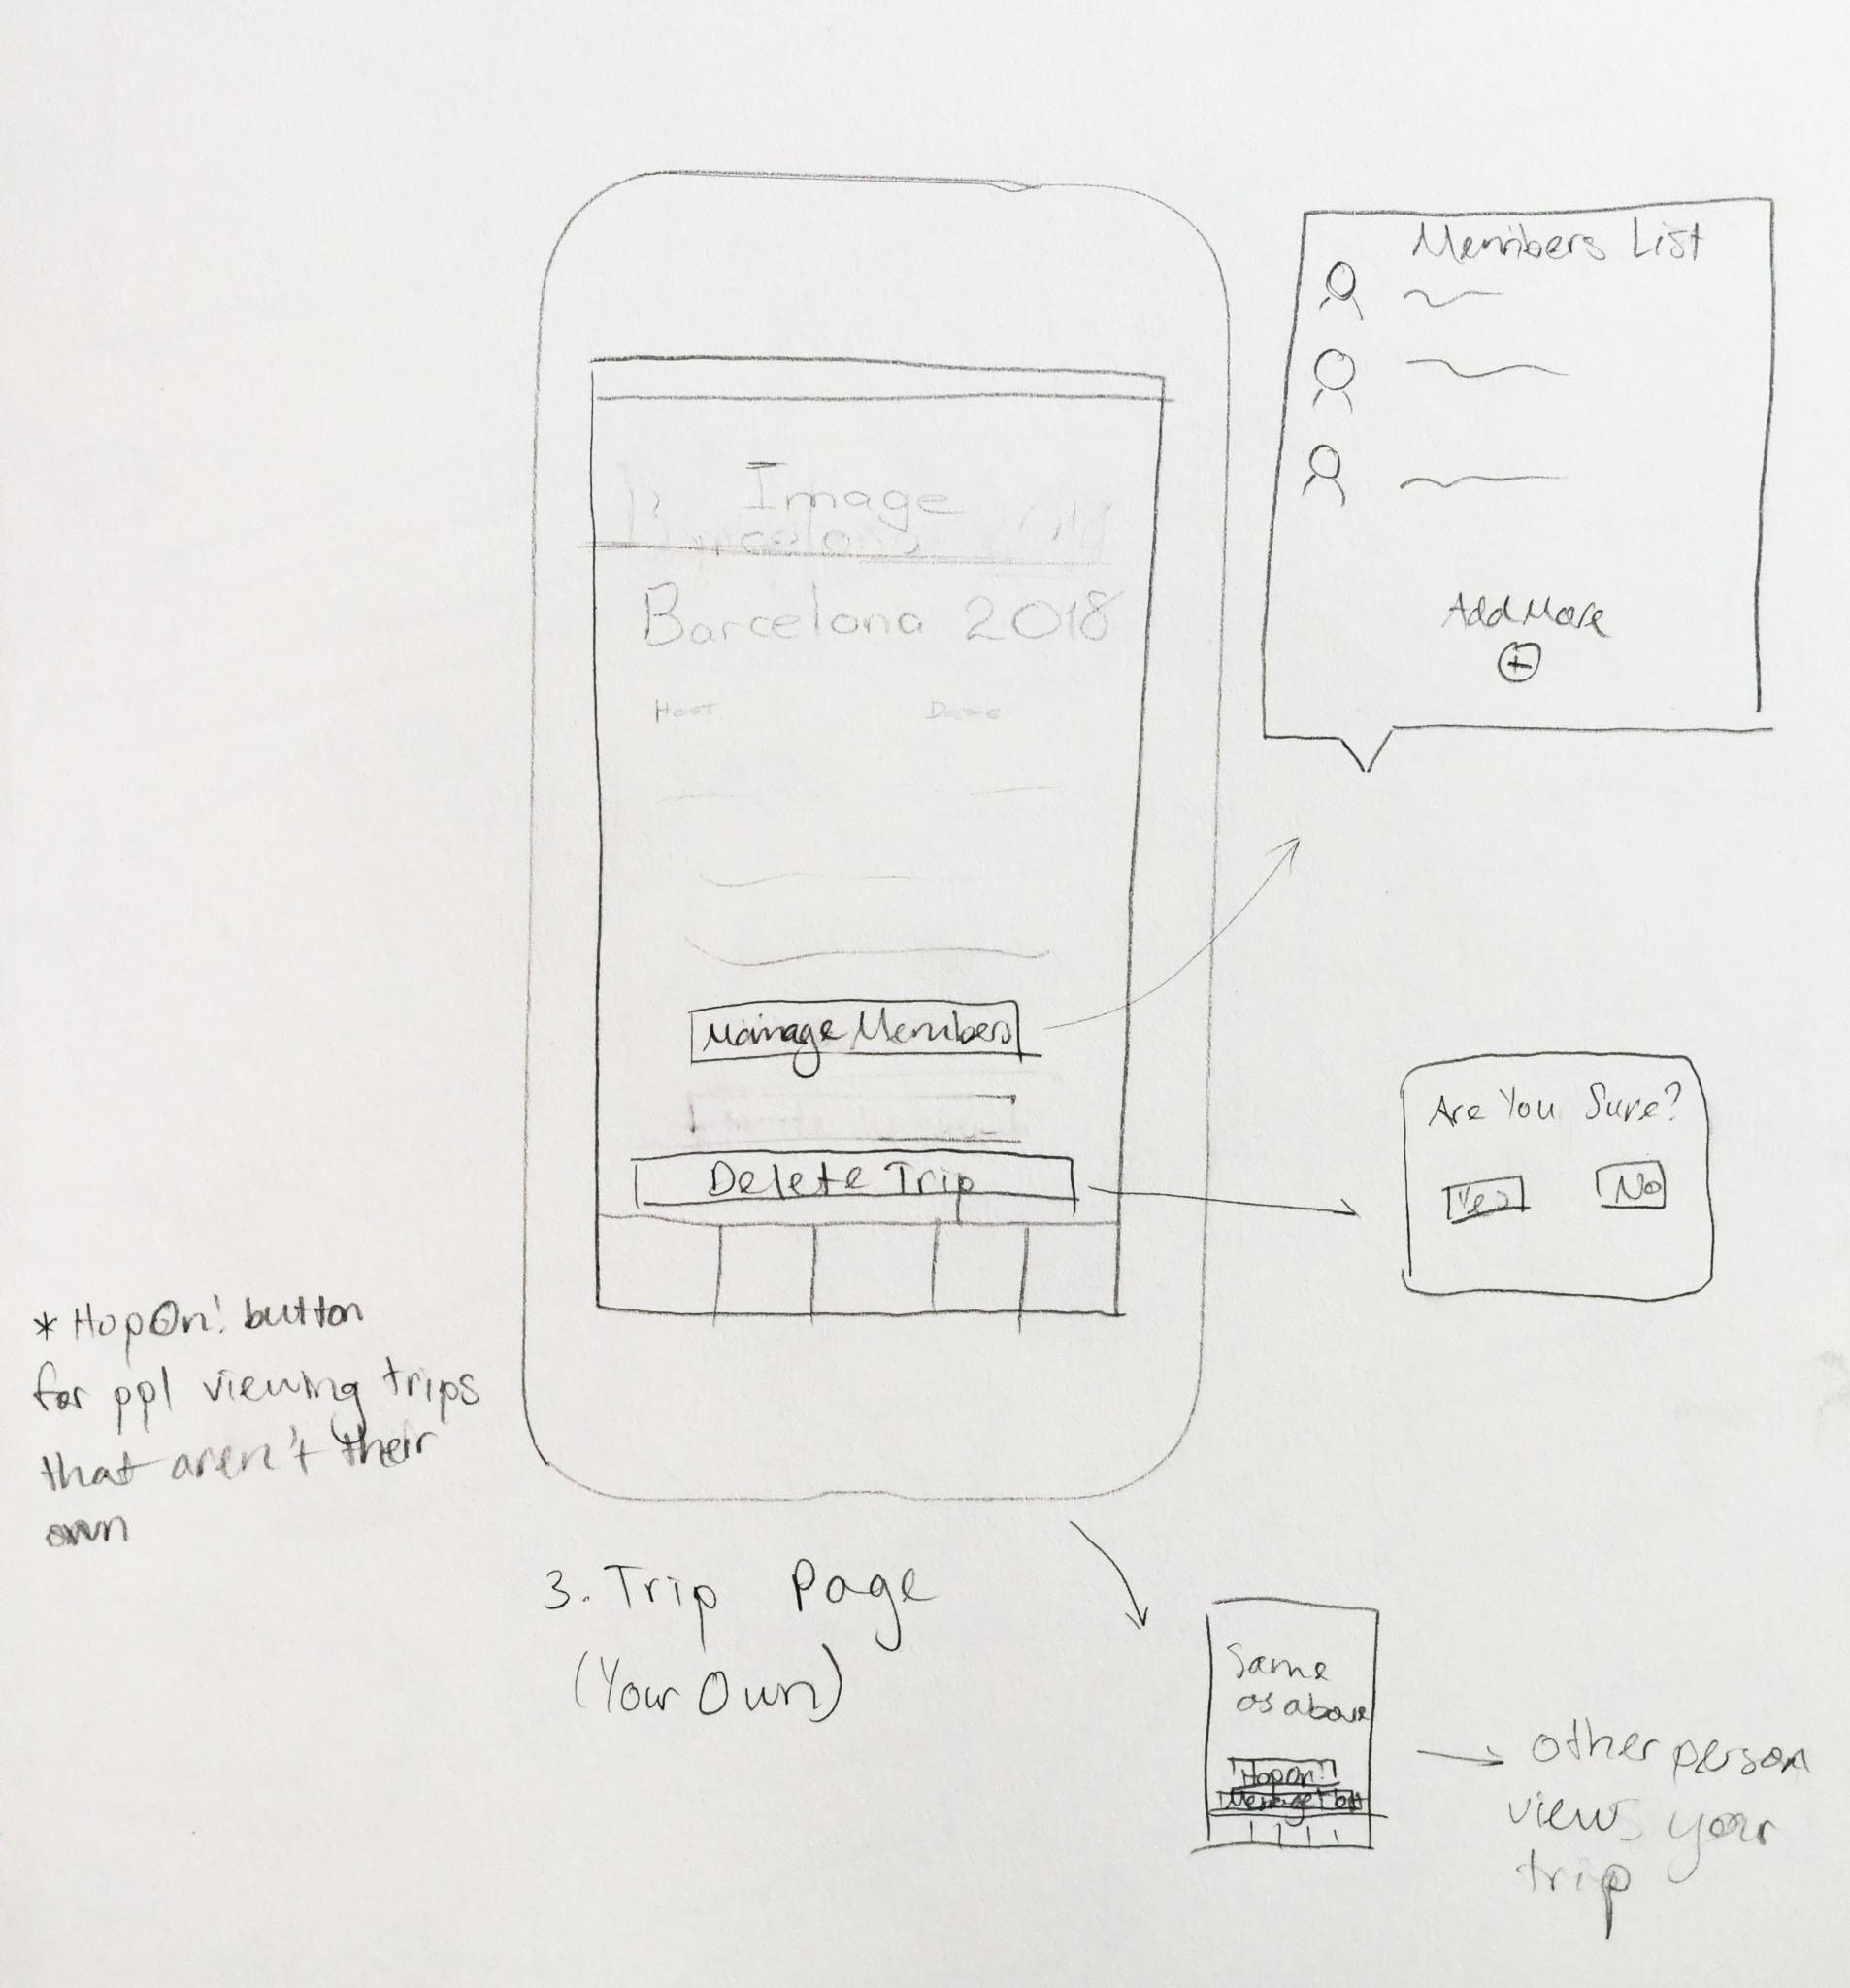 Image
Barcelona 2018
Host Date
Manage Members
Delete Trip
Members List
Add More
+
Are You Sure?
Yes No
* HopOn! button
for ppl viewing trips
that aren't their
own
3. Trip Page
(Your Own)
Same
as above
HopOn!
Message Host
other person
views your
trip